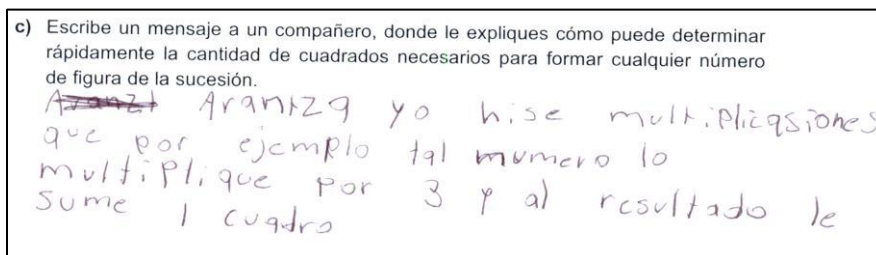 c) Escribe un mensaje a un compañero, donde le expliques cómo puede determinar
rápidamente la cantidad de cuadrados necesarios para formar cualquier número
de figura de la sucesión.
Arantza yo hise multiplicasiones
que por ejemplo tal mumero lo
multiplique por 3 y al resultado le
sume 1 cuadro